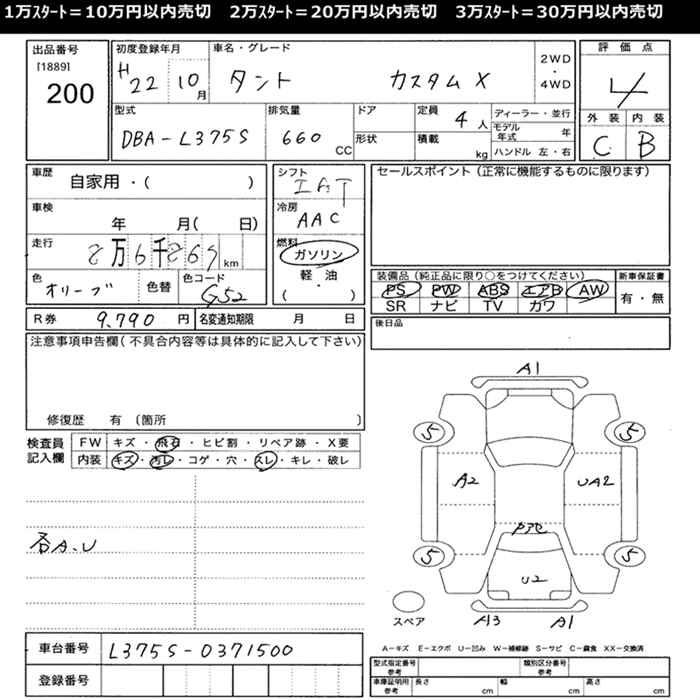 1万スタート＝10万円以内売切　2万スタート＝20万円以内売切　3万スタート＝30万円以内売切
出品番号 [1889] 200
初度登録年月 H22 10月
車名・グレード タント カスタムX
2WD・4WD
評価点 4
外装 C 内装 B
型式 DBA-L375S
排気量 660 CC
ドア 形状
定員 4人
積載 kg
ディーラー・並行
モデル年式 年
ハンドル 左・右
車歴 自家用・( )
車検 年 月( 日)
走行 2万6千269km
色 オリーブ 色替
色コード G52
シフト IAT
冷房 AAC
燃料 ガソリン 軽・油 ( )
セールスポイント(正常に機能するものに限ります)
装備品(純正品に限り○をつけてください)
PS PW ABS エアB AW
SR ナビ TV カワ
新車保証書 有・無
R券 9,790 円 名変通知期限 月 日
後日品
注意事項申告欄(不具合内容等は具体的に記入して下さい)
修復歴 有 (箇所
検査員記入欄
FW キズ・飛石・ヒビ割・リペア跡・X要
内装 キズ・汚レ・コゲ・穴・スレ・キレ・破レ
各A.U
A1
5 5
A2 UA2
5 5
U2
スペア
A13 A1
A－キズ E－エクボ U－凹み W－補修跡 S－サビ C－腐食 XX－交換済
車台番号 L375S-0371500
登録番号
型式指定番号 参考 類別区分番号 参考
車庫証明用 参考 長さ cm 幅 cm 高さ cm